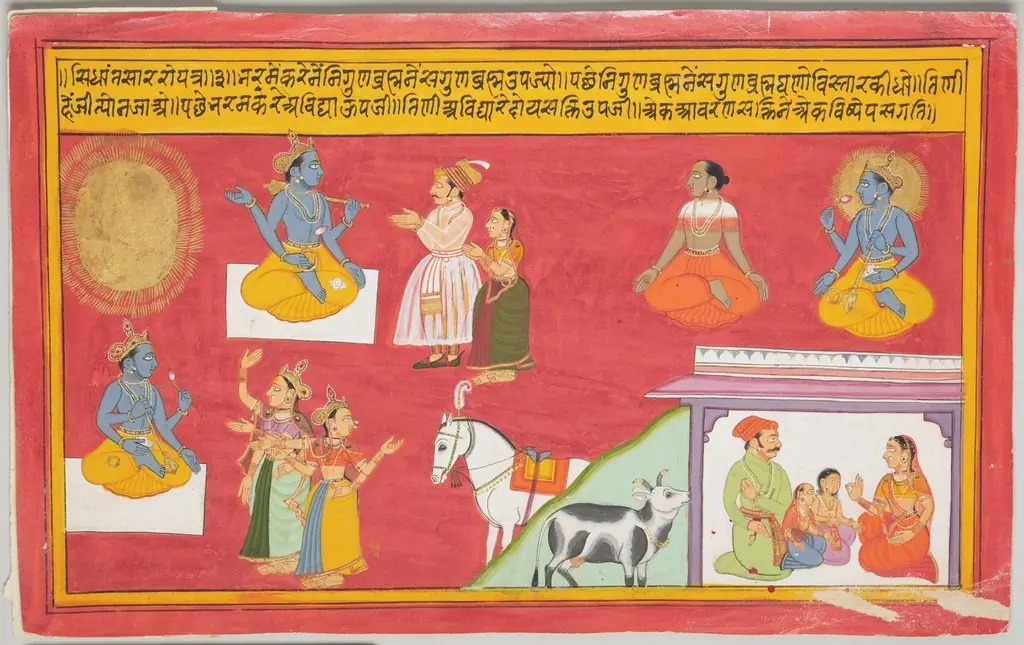 ॥सिधांतसार रो पत्र॥३॥ नरमें करेमें निगुण ब्रह्मनें सगुण ब्रह्म उपज्यो॥ पछे निगुण ब्रह्मनें सगुण ब्रह्म घणो विस्तार कीधो॥ तिणी
हें जीत्यो न जाओ॥ पछे नरमकरे अविद्या ऊपजी॥ तिणी अविद्यारे दोय सक्ति उपजी॥ ओक आवरण सक्तिने ओक विष्षेप सगति॥